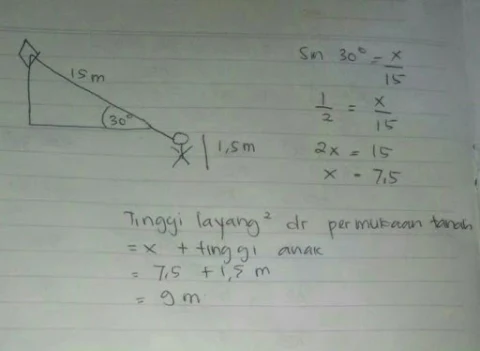 15 m
30°
1,5 m
Sin 30° = x/15
1/2 = x/15
2x = 15
x = 7,5
Tinggi layang² dr permukaan tanah
= x + tinggi anak
= 7,5 + 1,5 m
= 9 m